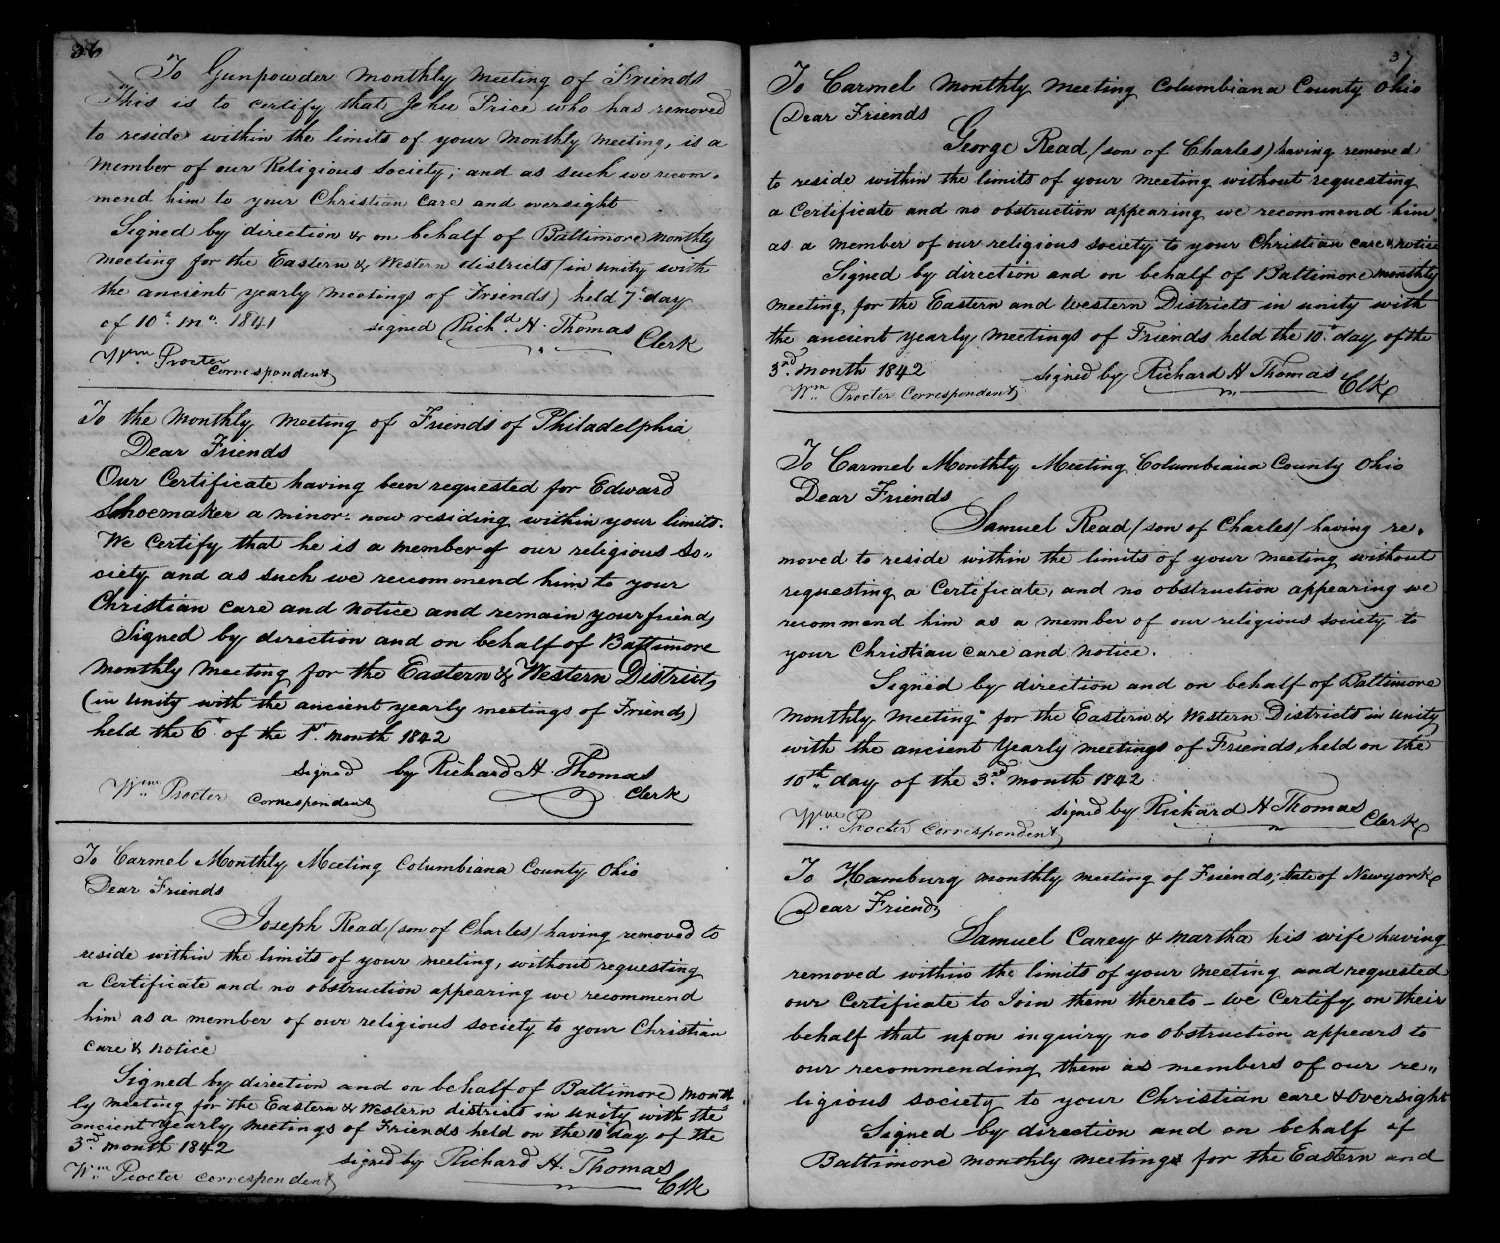 36
To Gunpowder Monthly Meeting of Friends
This is to certify that Jehu Price who has removed
to reside within the limits of your Monthly Meeting, is a
member of our Religious Society; and as such we recom-
mend him to your Christian care and oversight
Signed by direction & on behalf of Baltimore Monthly
Meeting for the Eastern & Western districts (in unity with
the ancient yearly meetings of Friends) held 7th day
of 10th mo. 1841 signed Richd. H. Thomas
Clerk
Wm Procter
Correspondent
To the Monthly Meeting of Friends of Philadelphia
Dear Friends
Our Certificate having been requested for Edward
Shoemaker a minor now residing within your limits.
We Certify that he is a member of our religious So-
ciety and as such we recommend him to your
Christian care and notice and remain your friends
Signed by direction and on behalf of Baltimore
Monthly Meeting for the Eastern & Western Districts
(in unity with the ancient yearly meetings of Friends)
held the 6th of the 1st month 1842
signed by Richard H. Thomas
Wm Procter Correspondent Clerk
To Carmel Monthly Meeting Columbiana County Ohio
Dear Friends
Joseph Read (son of Charles) having removed to
reside within the limits of your meeting, without requesting
a Certificate and no obstruction appearing we recommend
him as a member of our religious society to your Christian
care & notice
Signed by direction and on behalf of Baltimore month
ly meeting for the Eastern & Western districts in unity with the
ancient Yearly Meetings of Friends held on the 10th day of the
3rd month 1842
signed by Richard H. Thomas
Wm Procter correspondent Clk
37
To Carmel Monthly Meeting Columbiana County Ohio
Dear Friends
George Read (son of Charles) having removed
to reside within the limits of your meeting without requesting
a Certificate and no obstruction appearing we recommend him
as a member of our religious society to your Christian care & notice
Signed by direction and on behalf of Baltimore monthly
meeting for the Eastern and Western Districts in unity with
the ancient yearly meetings of Friends held the 10th day of the
3rd month 1842 signed by Richard H Thomas
Wm Procter Correspondent Clk
To Carmel Monthly Meeting Columbiana County Ohio
Dear Friends
Samuel Read (son of Charles) having re-
moved to reside within the limits of your meeting without
requesting a Certificate, and no obstruction appearing we
recommend him as a member of our religious society to
your Christian care and notice.
Signed by direction and on behalf of Baltimore
monthly Meeting for the Eastern & Western Districts in unity
with the ancient Yearly meetings of Friends, held on the
10th day of the 3rd month 1842
signed by Richard H Thomas
Wm Procter Correspondent Clerk
To Hamburg monthly meeting of Friends, State of Newyork
Dear Friends
Samuel Carey & Martha his wife having
removed within the limits of your meeting and requested
our Certificate to Join them thereto - we Certify on their
behalf that upon inquiry no obstruction appears to
our recommending them as members of our re-
ligious society to your Christian care & oversight
Signed by direction and on behalf of
Baltimore monthly meeting for the Eastern and